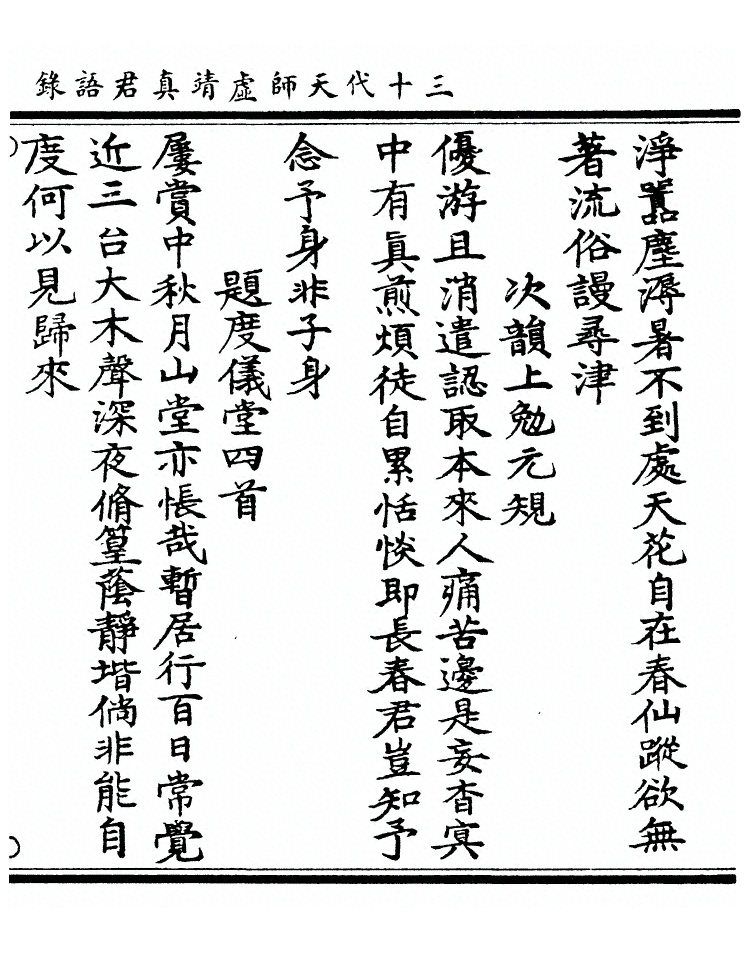 三十代天師虛靖真君語錄
淨囂塵溽暑不到處天花自在春仙蹤欲無
著流俗謾尋津
次韻上勉元規
優游且消遣認取本來人痛苦邊是妄杳冥
中有眞煎煩徒自累恬惔即長春君豈知予
念予身非子身
題度儀堂四首
屢賞中秋月山堂亦悵哉暫居行百日常覺
近三台大木聲深夜脩篁蔭靜堦倘非能自
度何以見歸來